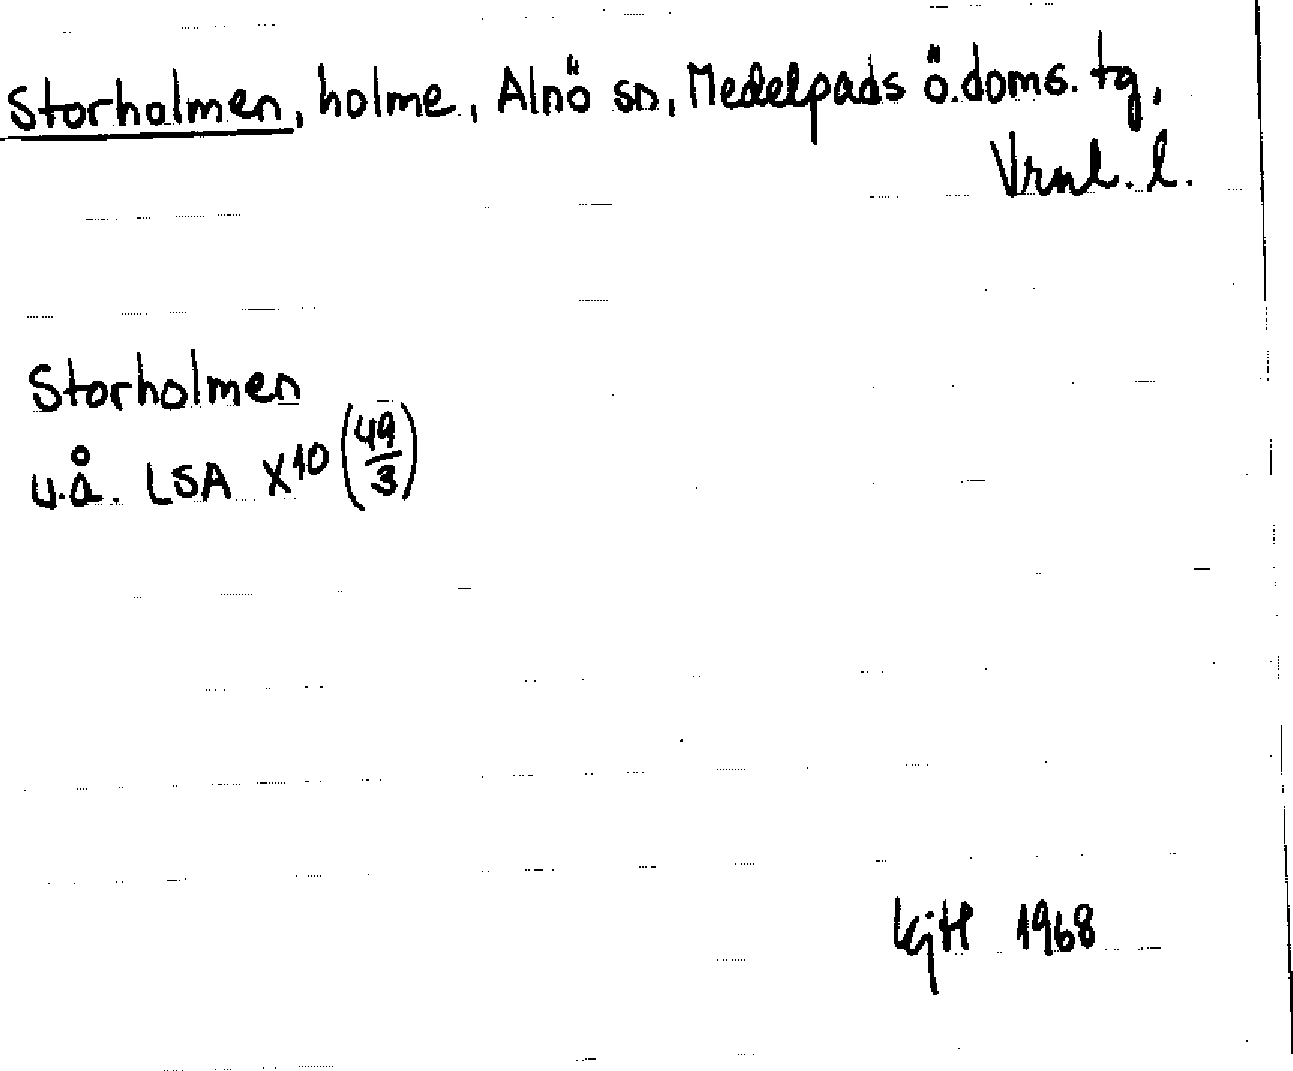 Storholmen, holme, Alnö sn, Medelpads ö. doms. tg,
Vrnl. l.
Storholmen
u.å. LSA X10 (49/3)
KjH 1968